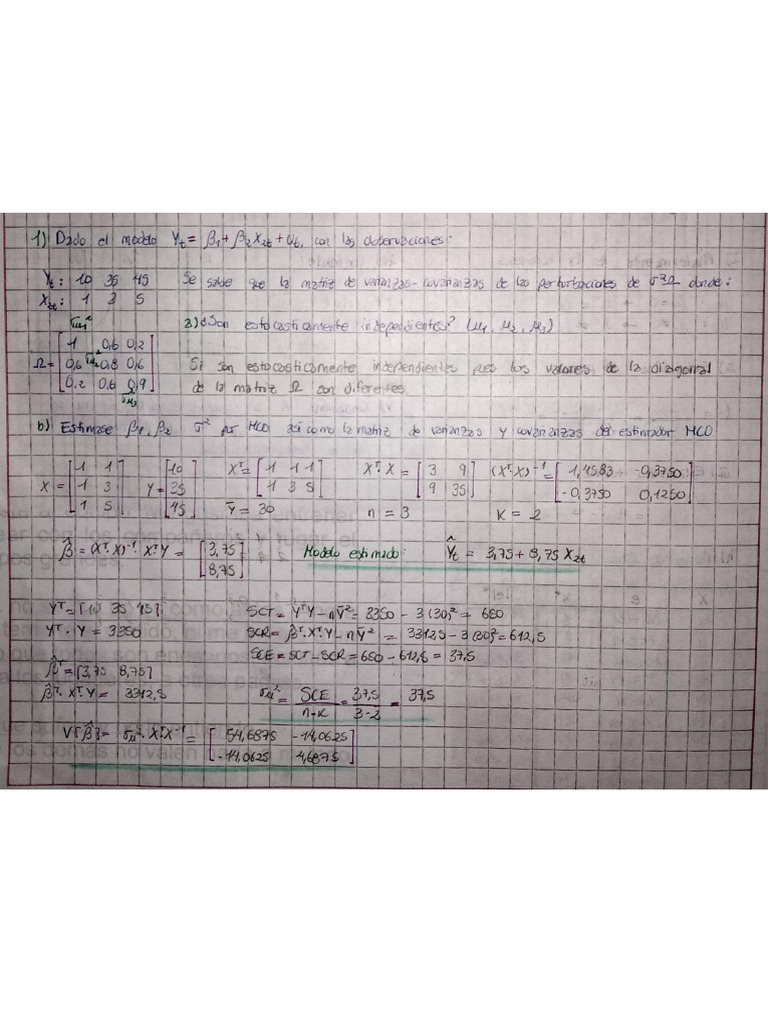 1) Dado el modelo Yt = β1 + β2 X2t + Ut, con las observaciones:
Yt: 10 35 45 Se sabe que la matriz de varianzas-covarianzas de las perturbaciones de σ²Ω donde:
X2t: 1 3 5
a) ¿Son estocasticamente independientes? (μ1, μ2, μ3)
σμ1²
Ω = [1 0,6 0,2
0,6 σμ2² 0,8 0,6
0,2 0,6 0,9]
σμ3
Si son estocasticamente independientes pues los valores de la diagonal
de la matriz Ω son diferentes
b) Estimase β1, β2 σ² por MCO asi como la matriz de varianzas y covarianzas del estimador MCO
X = [1 1
1 3
1 5] Y = [10
35
45] Xᵀ = [1 1 1
1 3 5] Xᵀ·X = [3 9
9 35] (Xᵀ·X)⁻¹ = [1,4583 -0,3750
-0,3750 0,1250]
Ȳ = 30 n = 3 K = 2
β̂ = (Xᵀ·X)⁻¹·XᵀY = [3,75
8,75] Modelo estimado: Ŷt = 3,75 + 8,75 X2t
Yᵀ = [10 35 45] SCT = YᵀY - nȲ² = 3350 - 3(30)² = 650
Yᵀ·Y = 3350 SCR = β̂ᵀ·XᵀY - nȲ² = 3312,5 - 3(30)² = 612,5
SCE = SCT - SCR = 650 - 612,5 = 37,5
β̂ᵀ = [3,75 8,75]
β̂ᵀ·Xᵀ·Y = 3312,5 σμ² = SCE/n-K = 37,5/3-2 = 37,5
V[β̂] = σμ²·XᵀX⁻¹ = [54,6875 -14,0625
-14,0625 4,6875]